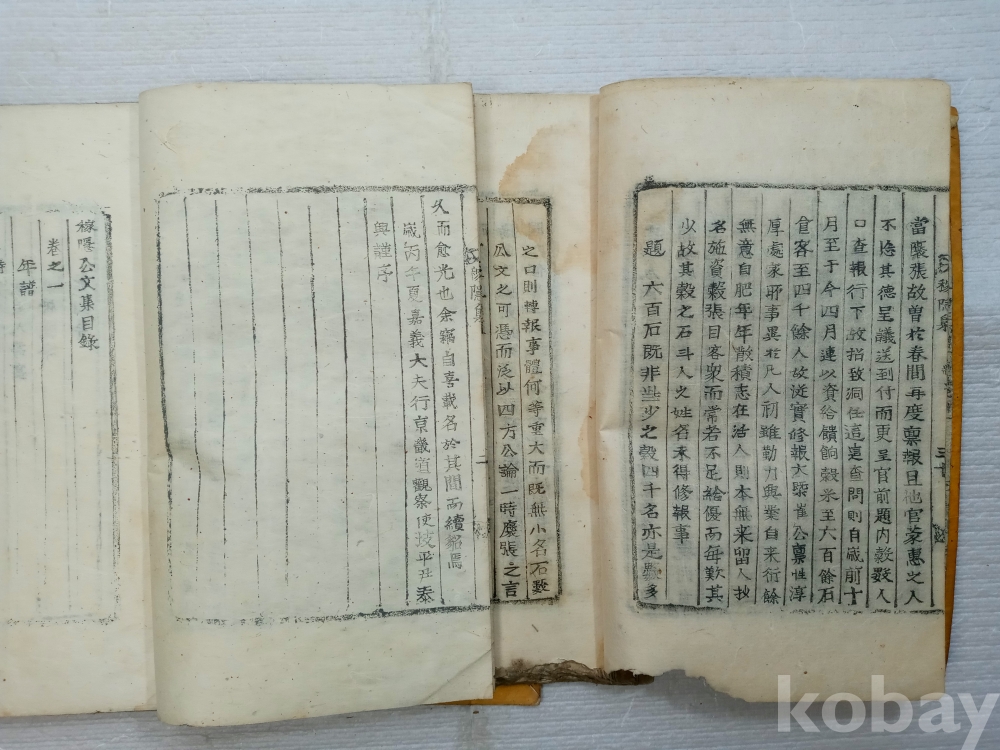 當褒張故曽於春間再度禀報且他官蒙惠之人
不怹其德呈議送到付而更呈官前題內穀數人
口查報行下故招致洞任這這查問則自歲前十
月至于今四月連以資給饋餉穀米至六百餘石
食客至四千餘人故從實修報大槩崔公禀性淳
厚處家耶事異於凡人初雖勤力興業自来衍餘
無意自肥年年散積志在活人則本無来留人抄
名施資穀張目客衆而常若不足給優而每歎其
少故其穀之石斗人之姓名未得修報事
題 六百石既非些少之穀四千名亦是夥多
之口則轉報事體何等重大而既無小名石數
公文之可憑而泛以四方公論一時褒張之言
久而愈光也余竊自喜載名於其間而續貂焉
歲丙午夏嘉義大夫行京畿道觀察使技平 泰
興謹序
稼隱公文集目錄
卷之一
年譜
詩
kobay